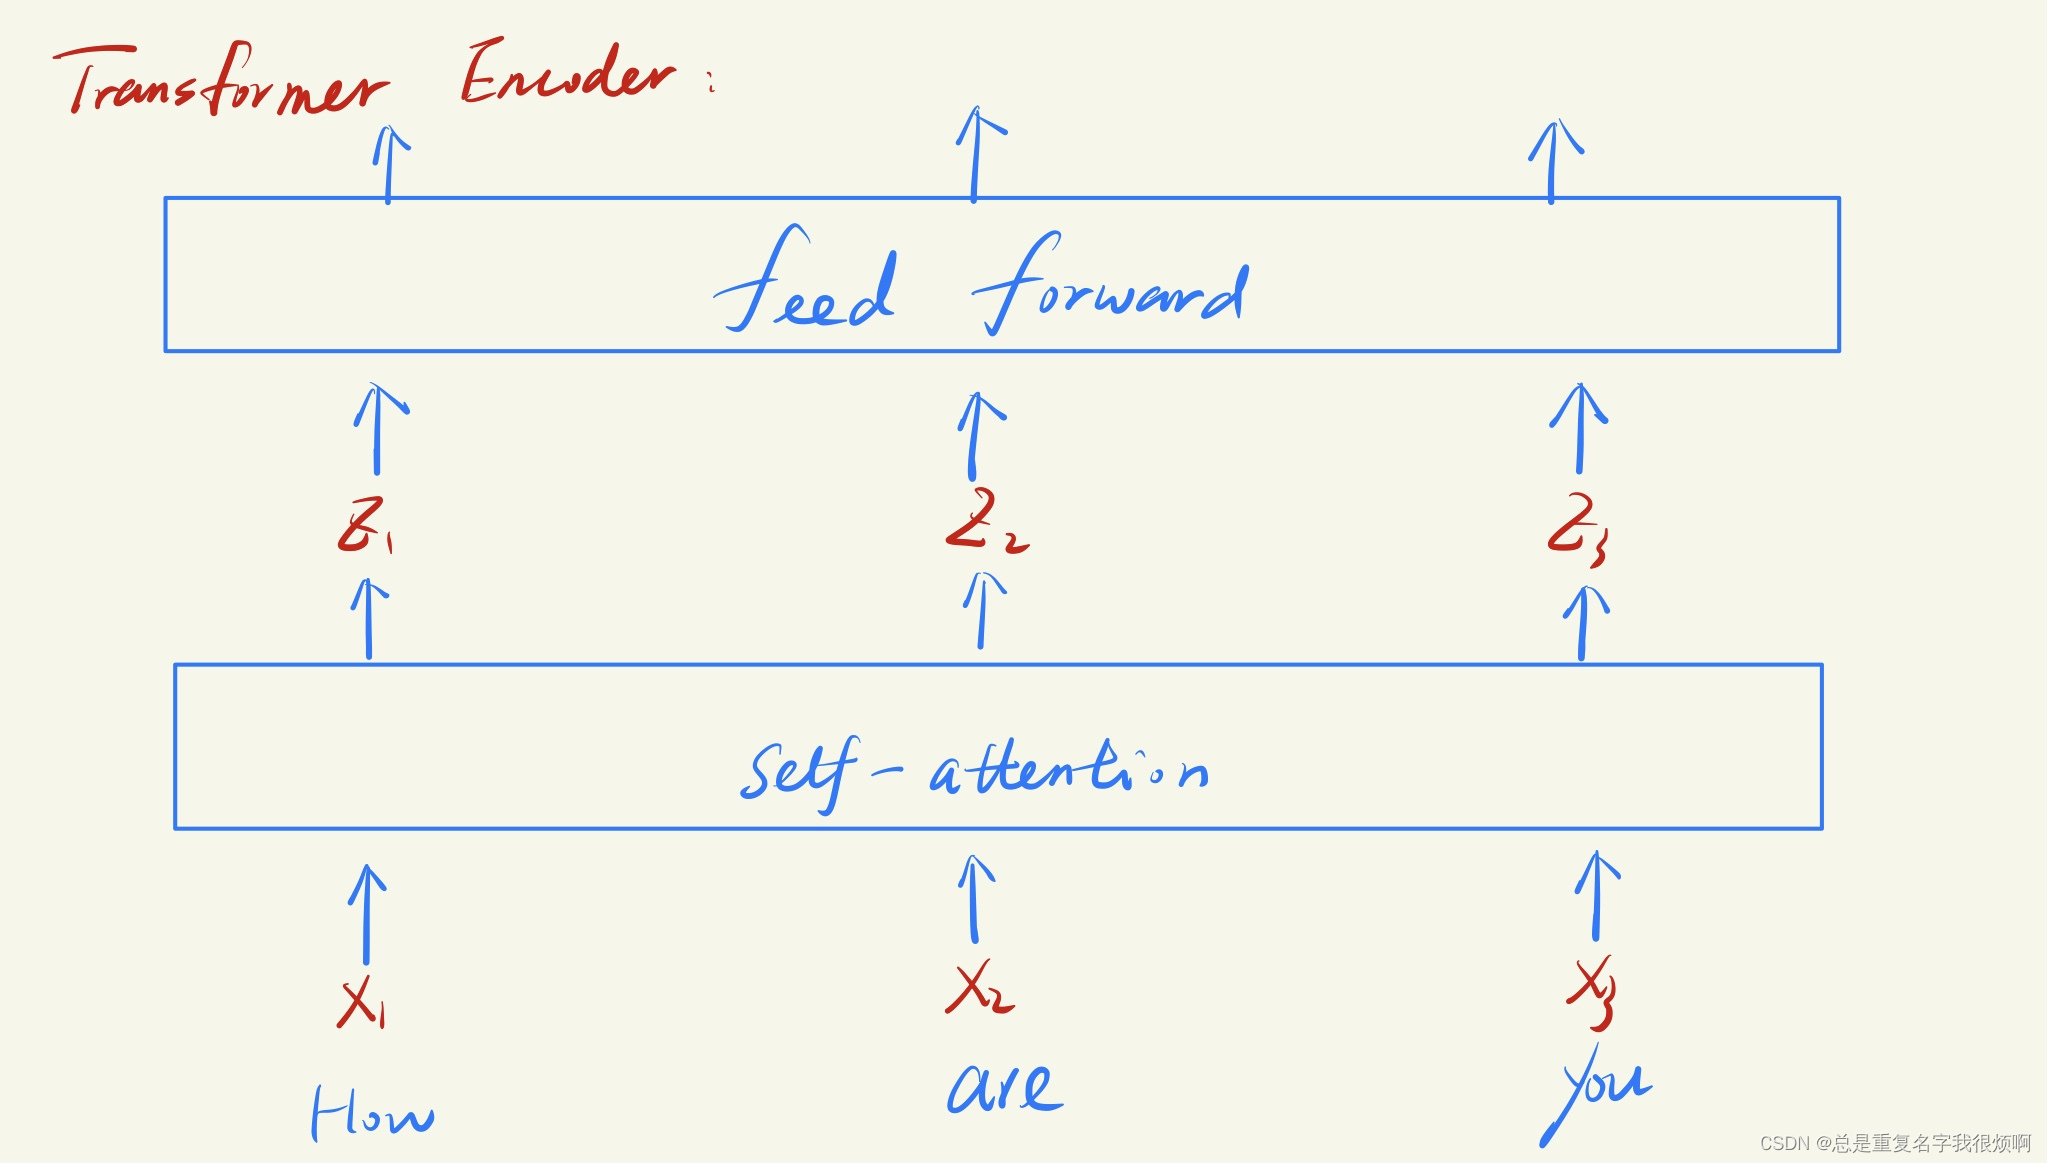 Transformer Encoder:
feed forward
Z₁ Z₂ Z₃
self-attention
X₁ X₂ X₃
How are you
CSDN @总是重复名字我很烦啊